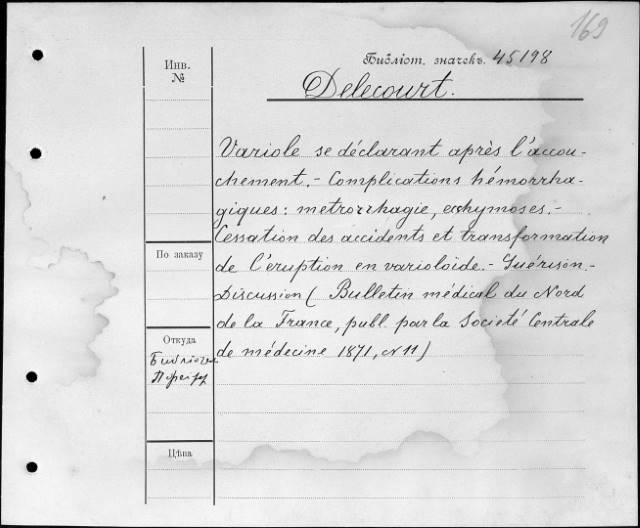 169
Инв.
№
Библіот. значекъ. 45198
Delecourt.
Variole se déclarant après l'accou-
chement. - Complications hémorrha-
giques: metrorrhagie, ecchymoses. -
Cessation des accidents et transformation
de l'éruption en varioloïde. - Guérison. -
Discussion ( Bulletin médical du Nord
de la France, publ. par la Société Centrale
de médecine 1871, № 11)
По заказу
Откуда
Цѣна